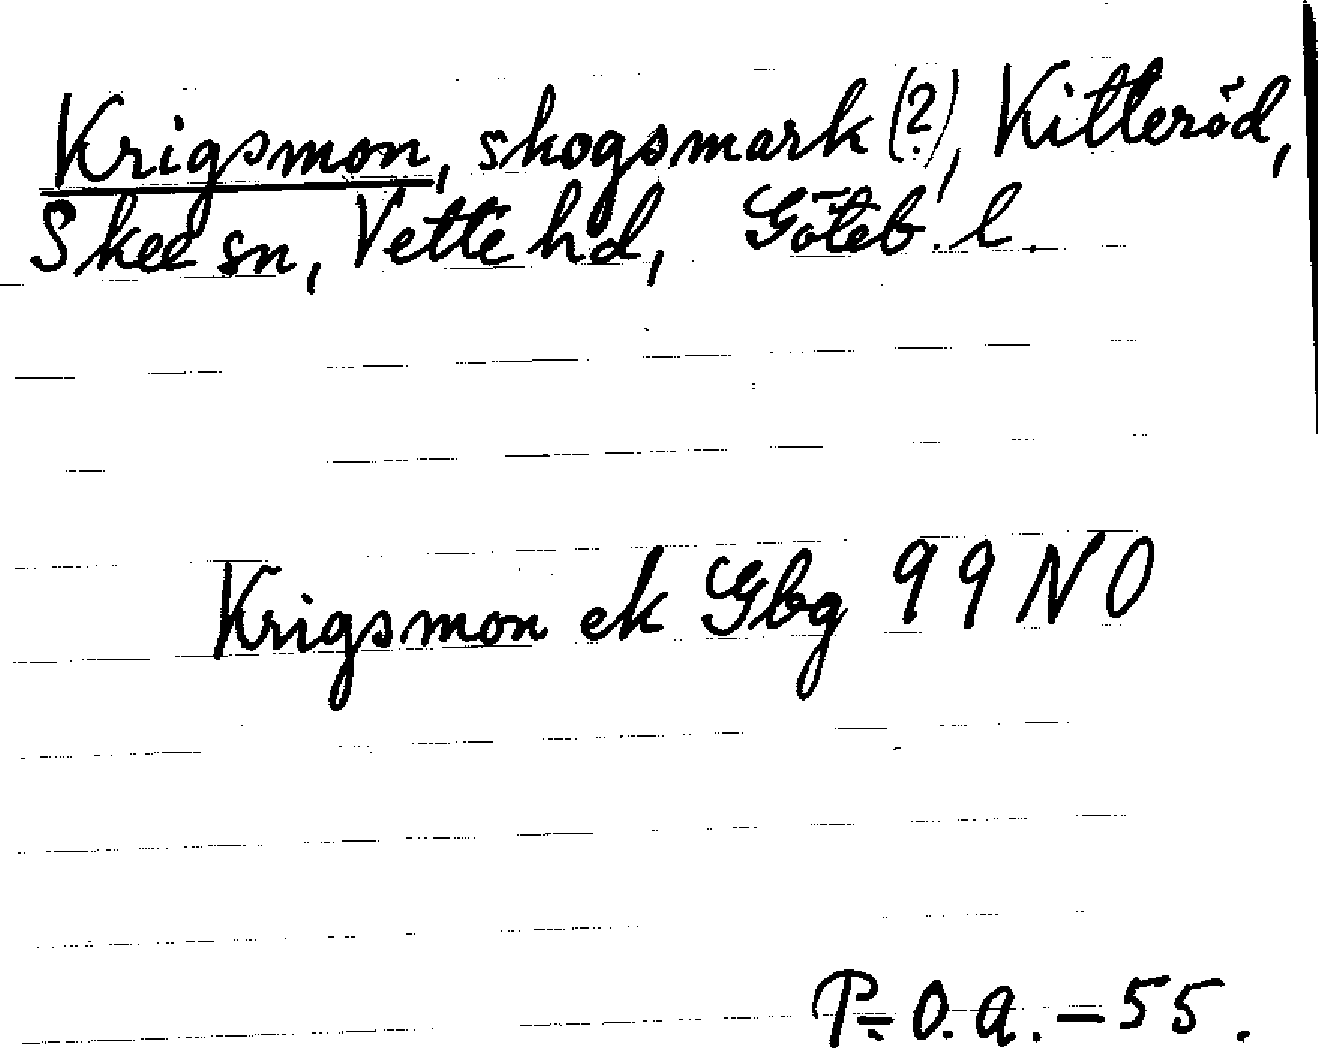 Krigsmon, skogsmark (?), Kitteröd,
Skee sn, Vette hd, Göteb. l.
Krigsmon ek Gbg 99 NO
P-O. A. - 55.